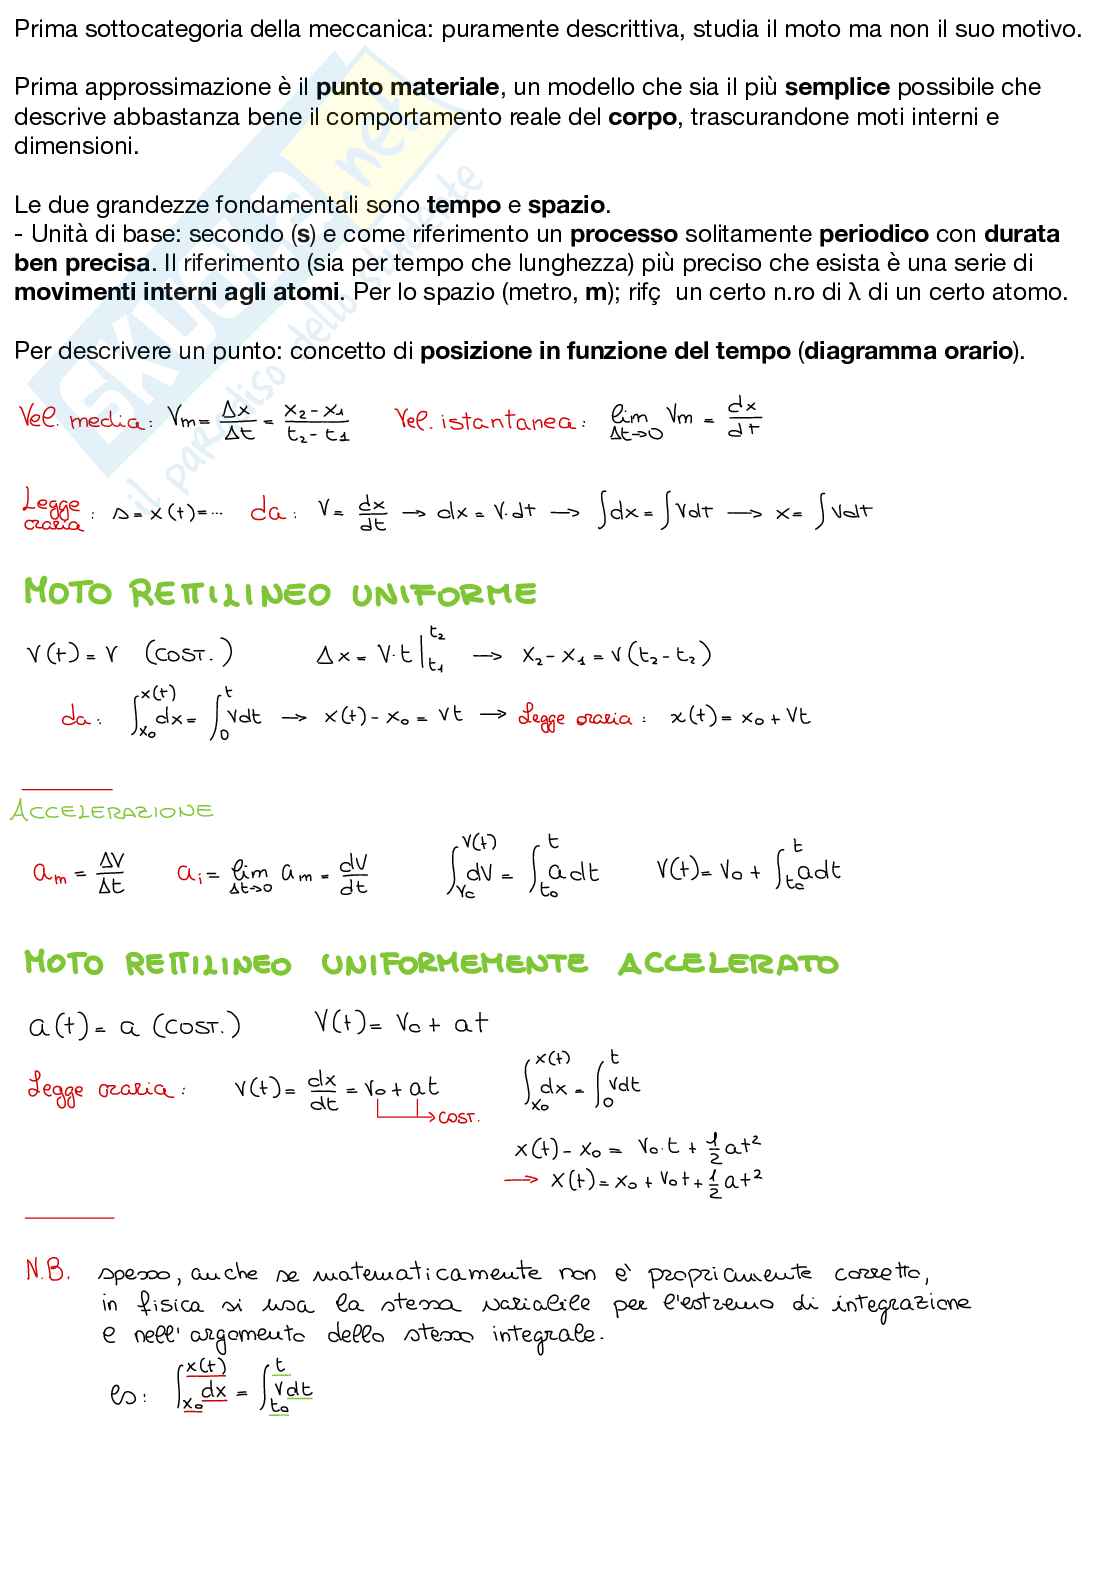 Prima sottocategoria della meccanica: puramente descrittiva, studia il moto ma non il suo motivo.
Prima approssimazione è il punto materiale, un modello che sia il più semplice possibile che
descrive abbastanza bene il comportamento reale del corpo, trascurandone moti interni e
dimensioni.
Le due grandezze fondamentali sono tempo e spazio.
- Unità di base: secondo (s) e come riferimento un processo solitamente periodico con durata
ben precisa. Il riferimento (sia per tempo che lunghezza) più preciso che esista è una serie di
movimenti interni agli atomi. Per lo spazio (metro, m); rifç un certo n.ro di λ di un certo atomo.
Per descrivere un punto: concetto di posizione in funzione del tempo (diagramma orario).
Vel. media: Vm = Δx/Δt = (x2 - x1)/(t2 - t1) Vel. istantanea: lim Δt→0 Vm = dx/dt
Legge oraria: s = x(t) = ... da: V = dx/dt → dx = V·dt → ∫dx = ∫Vdt → x = ∫Vdt
MOTO RETTILINEO UNIFORME
V(t) = V (COST.) Δx = V·t |t1 t2 → x2 - x1 = V(t2 - t2)
da: ∫x0 x(t) dx = ∫0 t Vdt → x(t) - x0 = Vt → Legge oraria: x(t) = x0 + Vt
ACCELERAZIONE
am = ΔV/Δt ai = lim Δt→0 am = dV/dt ∫V0 V(t) dV = ∫t0 t a dt V(t) = V0 + ∫t0 t a dt
MOTO RETTILINEO UNIFORMEMENTE ACCELERATO
a(t) = a (COST.) V(t) = V0 + at
Legge oraria: V(t) = dx/dt = V0 + at ∫x0 x(t) dx = ∫0 t Vdt
COST.
x(t) - x0 = V0·t + 1/2 at²
→ x(t) = x0 + V0t + 1/2 at²
N.B. spesso, anche se matematicamente non è propriamente corretto,
in fisica si usa la stessa variabile per l'estremo di integrazione
e nell'argomento dello stesso integrale.
es: ∫x0 x(t) dx = ∫t0 t Vdt
SKUOLA.net
il paradiso dello studente